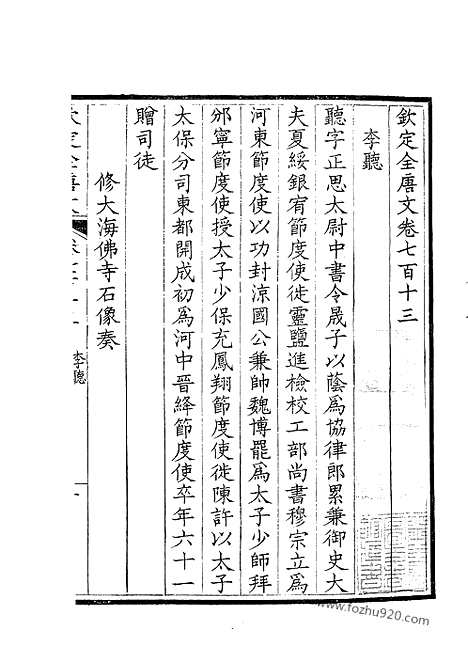 欽定全唐文卷七百十三
李聽
聽字正思太尉中書令晟子以蔭為協律郎累兼御史大
夫夏綏銀宥節度使徙靈鹽進檢校工部尚書穆宗立為
河東節度使以功封涼國公兼帥魏博罷為太子少師拜
邠寧節度使授太子少保充鳳翔節度使徙陳許以太子
太保分司東都開成初為河中晉絳節度使卒年六十一
贈司徒
修大海佛寺石像奏
李聽
一
www.fozhu920.com